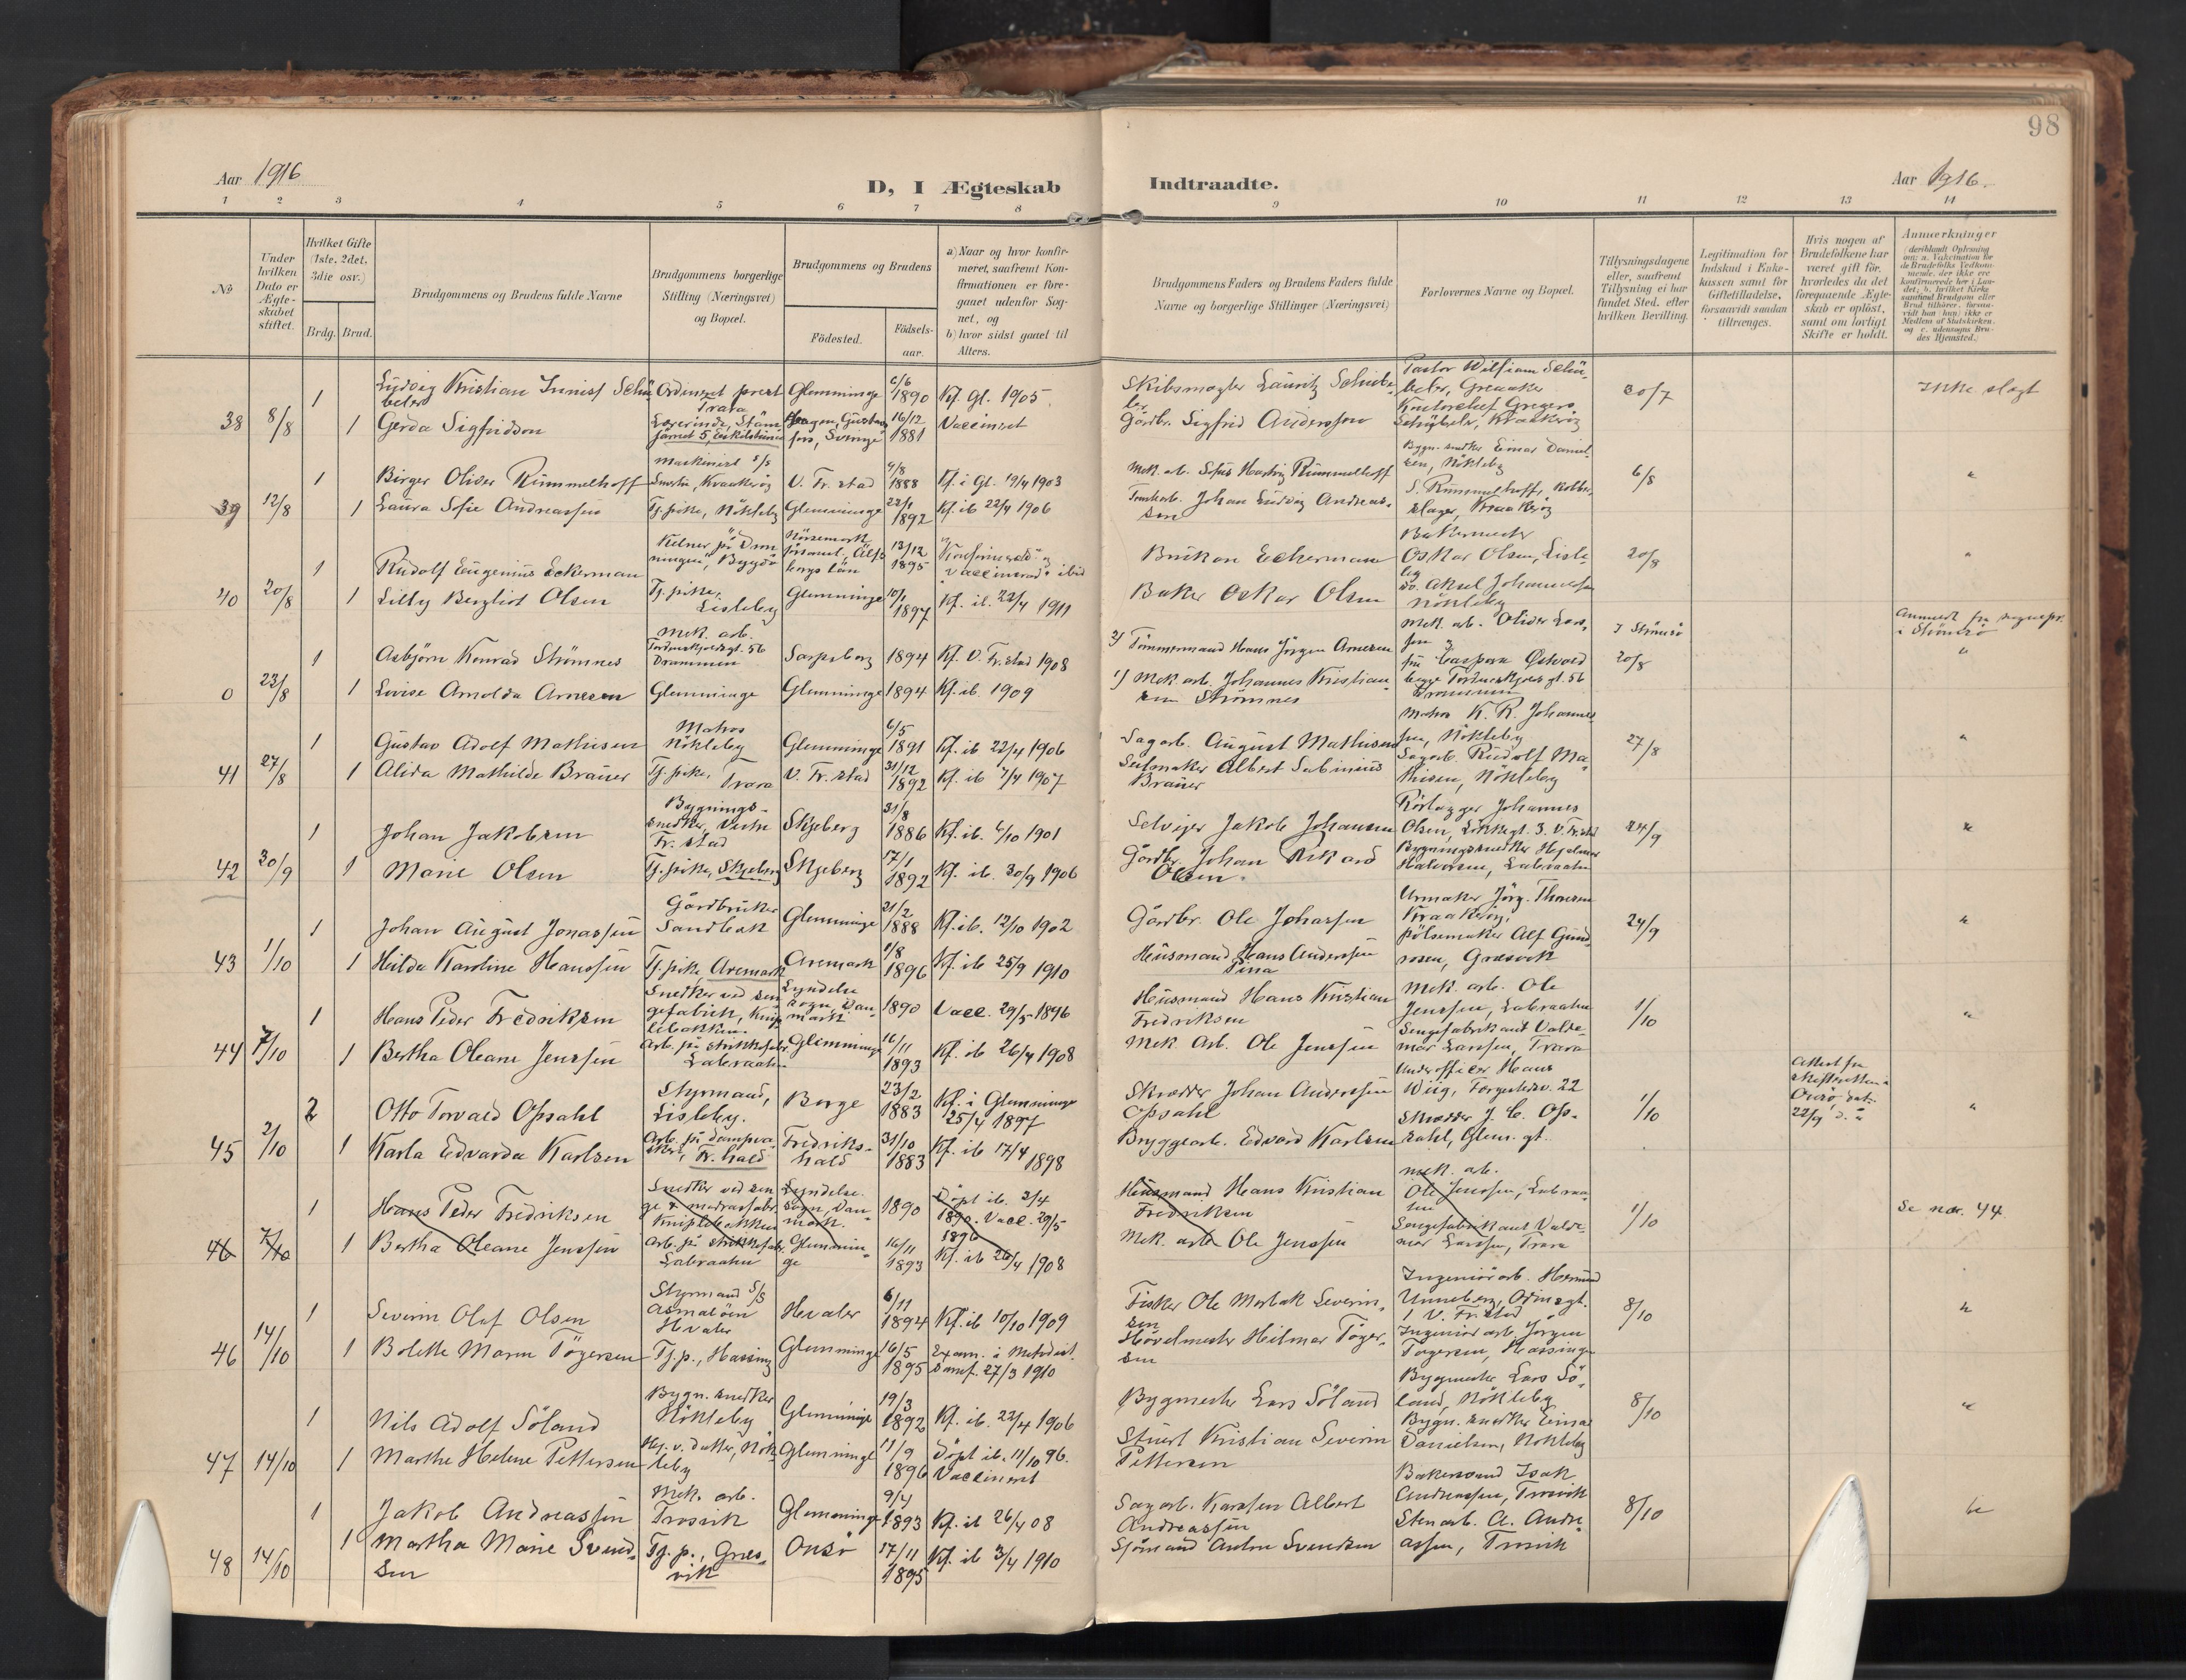 98
Aar 1916
D, I Ægteskab Indtraadte.
Aar 1916.
1 2 3 4 5 6 7 8 9 10 11 12 13 14
No
Under hvilken Dato er Ægteskabet stiftet.
Hvilket Gifte (1ste, 2det, 3die osv.)
Brdg. Brud.
Brudgommens og Brudens fulde Navne
Brudgommens borgerlige Stilling (Næringsvei) og Bopæl.
Brudgommens og Brudens
Födested.
Födselsaar.
a) Naar og hvor konfirmeret, saafremt Konfirmationen er foregaaet udenfor Sognet, og
b) hvor sidst gaaet til Alters.
Brudgommens Faders og Brudens Faders fulde Navne og borgerlige Stillinger (Næringsvei)
Forlovernes Navne og Bopæl.
Tillysningsdagene eller, saafremt Tillysning ei har fundet Sted, efter hvilken Bevilling.
Legitimation for Indskud i Enkekassen samt for Giftetilladelse, forsaavidt saadan tiltrænges.
Hvis nogen af Brudefolkene har været gift för, hvorledes da det foregaaende Ægteskab er oplöst, samt om lovligt Skifte er holdt.
Anmærkninger
1 Ludvig Kristian Schübeler Ordineret prest Trara Glemminge 6/6 1890 Kf. Gl. 1905. Skibsmægler Lauritz Schübeler Pastor William Schübeler, Greaaker 30/7 Ikke slegt
38 8/8 1 Gerda Sigfridson Lærerinde, 5, Eskilstuna Sverige 16/12 1881 Vaccineret Gårdbr. Sigfrid Andersson Gregers Schübeler, Kraakerøy
1 Birger Oliver Rummelhoff Maskinist s/s Kraakerøy V. Fr. stad 9/8 1888 Kf. i Gl. 19/4 1903 Mek. arb. Hartvig Rummelhoff Bygn. snedker Einar Danielsen, Nökleby 6/8 "
39 12/8 1 Laura Sofie Andreassen Tj. pike, Nökleby Glemminge 22/1 1892 Kf. ib 22/4 1906 Johan Ludvig Andreassen S. Rummelhoff, Kraakerøy
1 Rudolf Eugenius Eckerman Kelner på Dronningen, Bygdø Elfsborgs län 13/12 1895 ibid Eckerman Bakermester Oskar Olsen, Lisleby 20/8 "
40 20/8 1 Lilly Bergliot Olsen Tj. pike, Lisleby Glemminge 10/1 1897 Kf. ib. 22/4 1911 Baker Oskar Olsen Do. Aksel Johannessen Nökleby
1 Asbjörn Konrad Strömnes Mek. arb. Tordenskjoldsgt. 56 Drammen Sarpsborg 1894 Kf. V. Fr. stad 1908 2) Tömmermand Hans Jörgen Arnesen Mek. arb. Oliver Larssen I Strömsö 20/8 Anmeldt fra sognepr. i Strömsö "
0 23/8 1 Lovise Arnolda Arnesen Glemminge Glemminge 1894 Kf. ib. 1909 1) Mek arb. Johannes Kristiansen Strømnes begge Tordenskjolds gt. 56 Drammen
1 Gustav Adolf Mathisen Matros Nökleby Glemminge 6/5 1891 Kf. ib 22/4 1906 Sagarb. August Mathisen Matros K. R. Johannessen, Nökleby 27/8 "
41 27/8 1 Alida Mathilde Brauer Tj. pike, Trara V. Fr. stad 31/12 1892 Kf. ib 7/4 1907 Seilmaker Albert Brauer Sagarb. Rudolf Mathisen, Nökleby
1 Johan Jakobsen Bygningssnedker, Vestre Fr. stad Skjeberg 31/8 1886 Kf. ib. 6/10 1901 Selveier Jakob Johansen Rörlægger Johannes Olsen, V. Fr. stad 24/9 "
42 30/9 1 Marie Olsen Tj. pike, Skjeberg Skjeberg 17/1 1892 Kf. ib. 30/9 1906 Gårdbr. Johan Rikard Olsen. Bygningssnedker Hjalmar Halvorsen, Labraaten
1 Johan August Jonassen Gårdbruker Sandbak Glemminge 21/2 1888 Kf. ib. 12/10 1902 Gårdbr. Ole Johassen Urmaker Jörg. Thoresen Kraakerøy, 24/9 "
43 1/10 1 Hilda Karoline Hanssen Tj. pike, Aremark Aremark 1/8 1896 Kf. ib 25/9 1910 Husmand Hans Anderssen pölsemaker Alf Gundrosen, Græsvik
1 Hans Peder Fredriksen Snedker ved sengefabrik, Kniplebakken. Lyndelse sogn, Danmark 1890 Vacc. 29/5 1896 Husmand Hans Kristian Fredriksen Mek. arb. Ole Jenssen, Labraaten 1/10 "
44 7/10 1 Bertha Oleane Jenssen Arb. på strikkefabr. Labraaten Glemminge 16/11 1893 Kf. ib 26/4 1908 Mek Arb. Ole Jenssen Sengefabrikant Valdemar Larssen, Trara
2 Otto Torvald Opsahl Styrmand, Lisleby. Borge 23/2 1883 Kf. i Glemminge 25/4 1897 Skrædder Johan Anderssen Opsahl Underofficer Hans Wiig, Færgestedsv. 22 1/10 Attest fra skifteretten i Onsö, dat. 22/9 d. å. "
45 2/10 1 Karla Edvarda Karlsen Arb. på dampvaskeri, Fr. hald Fredrikshald 31/10 1883 Kf. ib 17/4 1898 Bryggearb. Edvard Karlsen Skrædder J. C. Opsahl, Glem. gt.
1 Hans Peder Fredriksen Snedker ved senge & madrasfabr. Kniplebakken Lyndelse sogn, Danmark. 1890 Döpt ib. 3/4 1890. Vacc. 29/5 1896 Husmand Hans Kristian Fredriksen Mek. arb. Ole Jenssen, Labraaten 1/10 Se nær. 44
46 7/10 1 Bertha Oleane Jenssen Arb. på strikkefabr. Labraaten Glemminge 16/11 1893 Kf. ib 26/4 1908 Mek. arb Ole Jenssen Sengefabrikant Valdemar Larssen, Trara
1 Severin Olaf Olsen Styrmand S/S Asmalöen Hvaler Hvaler 6/11 1894 Kf. ib 10/10 1909 Fisker Ole Morbak Severinsen Ingeniörarb. Unneberg, V. Fr. stad 8/10 "
46 14/10 1 Bolette Marie Tögersen Tj. p., Hassing Glemminge 16/5 1895 Exam. i Metodist. samf. 27/3 1910 Hövelmester Hilmar Tögersen Ingeniörarb. Jörgen Tögersen, Hassing
1 Nils Adolf Söland Bygn. snedker Nökleby Glemminge 19/3 1892 Kf. ib. 22/4 1906 Bygmester Lars Söland Bygmester Lars Söland, Nökleby 8/10 "
47 14/10 1 Marthe Helene Pettersen Hj. v. datter, Nökleby Glemminge 11/9 1896 Döpt ib. 11/10 96. Vaccineret Stuert Kristian Severin Pettersen Bygn. snedker Einar Danielsen, Nökleby
1 Jakob Andreassen Mek. arb. Trosvik Glemminge 9/4 1893 Kf. ib 26/4 08 Sagarb. Karsten Albert Andreassen Bakersvend Isak Andreassen, Trosvik 8/10 "
48 14/10 1 Martha Marie Svendsen Tj. p., Græsvik Onsö 17/11 1895 Kf. ib 3/4 1910 Sjömand Anton Svendsen Stenarb. A. Andreassen, Trosvik